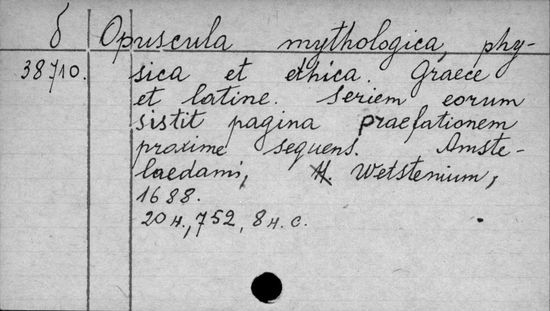 б Opuscula mythologica, phy-
38710. sica et ethica. Graece
et latine. Seriem eorum
sistit pagina praefationem
proxime sequens. Amste-
laedami, H. Wetstenium,
1688.
20 н., 752, 8 н. с.